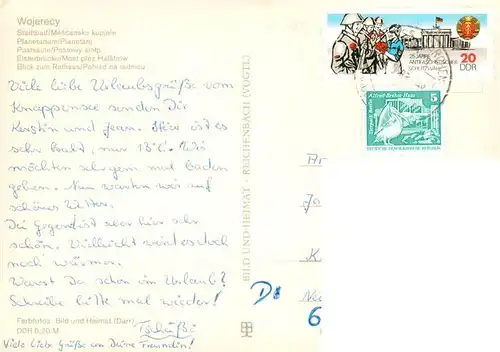 Wojerecy
Stadtbad/Měšćanske kupjele
Planetarium/Planetarij
Postsäule/Postowy stołp
Elsterbrücke/Most přez Halštrow
Blick zum Rathaus/Pohlad na radnicu
Viele liebe Urlaubsgrüße vom
Knappensee senden Dir
Kerstin und Jean. Hier ist es
sehr kalt, nur 13°C. Wir
möchten sehr gern mal baden
gehen. Nun warten wir auf
schönes Wetter.
Die Gegend ist aber hier sehr
schön. Vielleicht wird es doch
noch wärmer.
Warst Du schon im Urlaub?
Schreibe bitte mal wieder!
Tschüß!
Viele Liebe Grüße an Deine Freundin!
Farbfotos: Bild und Heimat (Darr)
DDR 0,20 M
BILD UND HEIMAT · REICHENBACH (VOGTL)
25 JAHRE
ANTIFASCHISTISCHER
SCHUTZWALL
20
DDR
Alfred-Brehm-Haus
Tierpark Berlin
5